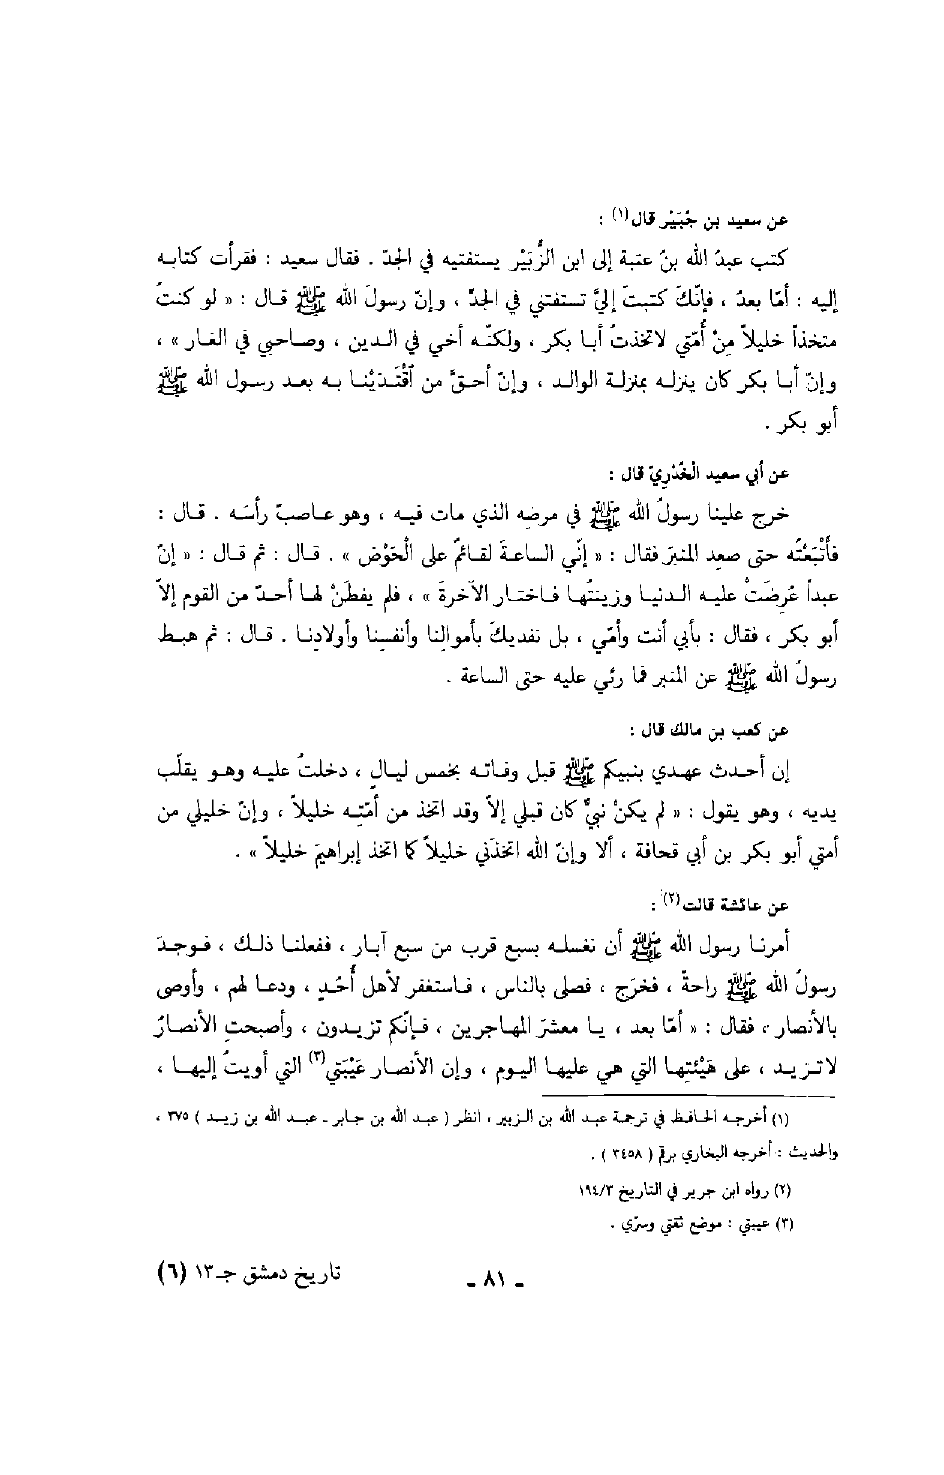 عن سعيد بن جُبَيْر قال(١) :
كتب عبدُ الله بنُ عتبة إلى ابن الزُّبَيْر يستفتيه في الجدّ . فقال سعيد : فقرأت كتابه
إليه : أمّا بعدُ ، فإنّكَ كتبتَ إليَّ تستفتني في الجدِّ ، وإنّ رسولَ الله ﷺ قال : « لو كنتُ
متخذاً خليلاً مِنْ أُمّتي لاتخذتُ أبا بكر ، ولكنّه أخي في الدين ، وصاحبي في الغار » ،
وإنّ أبا بكر كان ينزله بمنزلة الوالد ، وإنّ أحقَّ من اقْتَدَيْنا به بعد رسول الله ﷺ
أبو بكر .
عن أبي سعيد الخُدْرِيّ قال :
خرج علينا رسولُ الله ﷺ في مرضِه الذي مات فيه ، وهو عاصبٌ رأسَه . قال :
فأَتْبَعْتُه حتى صعِد المنبرَ فقال : « إنّي الساعةَ لقائمٌ على الْحَوْض » . قال : ثم قال : « إنّ
عبداً عُرِضَتْ عليه الدنيا وزينتُها فاختار الآخرةَ » ، فلم يفطَنْ لها أحدٌ من القوم إلاّ
أبو بكر ، فقال : بأبي أنت وأمّي ، بل نفديكَ بأموالنا وأنفسِنا وأولادِنا . قال : ثم هبط
رسولُ الله ﷺ عن المنبر فما رئي عليه حتى الساعة .
عن كعب بن مالك قال :
إن أحدث عهدي بنبيكم ﷺ قبل وفاته بخمس ليالٍ ، دخلتُ عليه وهو يقلّب
يديه ، وهو يقول : « لم يكنْ نبيٌّ كان قبلي إلاّ وقد اتخذ من أمّتِه خليلاً ، وإنّ خليلي من
أمتي أبو بكر بن أبي قحافة ، ألا وإنّ الله اتخذَني خليلاً كما اتخذ إبراهيمَ خليلاً » .
عن عائشة قالت(٢) :
أمرنا رسول الله ﷺ أن نغسله بسبع قرب من سبع آبار ، ففعلنا ذلك ، فوجدَ
رسولُ الله ﷺ راحةً ، فخرَج ، فصلى بالناس ، فاستغفر لأهل أُحُدٍ ، ودعا لهم ، وأوصى
بالأنصار ، فقال : « أمّا بعد ، يا معشرَ المهاجرين ، فإنّكم تزيدون ، وأصبحتِ الأنصارُ
لاتزيد ، على هَيْئتِها التي هي عليها اليوم ، وإن الأنصار عَيْبَتي(٣) التي أويتُ إليها ،
(١) أخرجه الحافظ في ترجمة عبد الله بن الزبير ، انظر ( عبد الله بن جابر ـ عبد الله بن زيد ) ٣٧٥ ،
والحديث : أخرجه البخاري برقم ( ٣٤٥٨ ) .
(٢) رواه ابن جرير في التاريخ ١٩٤/٣
(٣) عيبتي : موضع ثقتي وسرّي .
ـ ٨١ ـ
تاريخ دمشق جـ١٣ (٦)